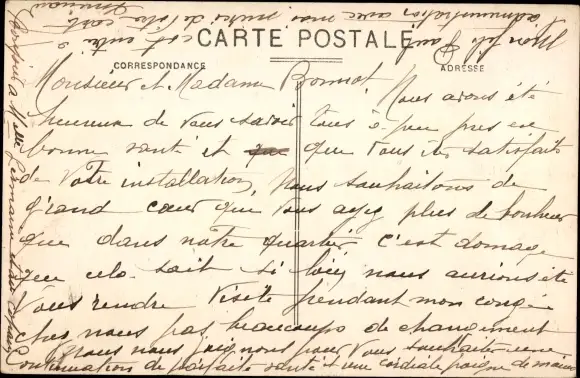 CARTE POSTALE
CORRESPONDANCE
ADRESSE
Monsieur et Madame Bonnot
Nous avons été
heureux de vous savoir tous à peu pres en
bonne santé et que vous êtes satisfait
de votre installation, Nous souhaitons de
grand cœur que vous ayez plus de bonheur
que dans notre quartier c'est domage
que cela soit si loin nous aurions été
vous rendre visite pendant mon congé
chez nous pas beaucoups de changement
nous nous joignons pour vous souhaiter une
continuation de parfaite santé et une cordiale poigne de mains
Bonjour a Melle Germaine
administration avec nos amies de l'autre coté